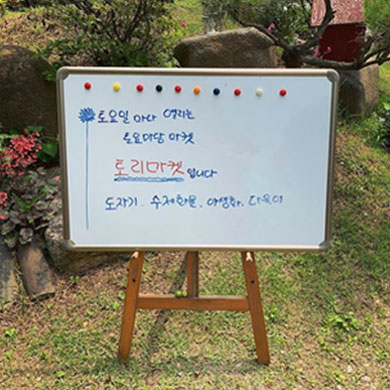 토요일 마다 열리는
토요마당 마켓
토리마켓 입니다
도자기. 수제화분. 야생화. 다육이